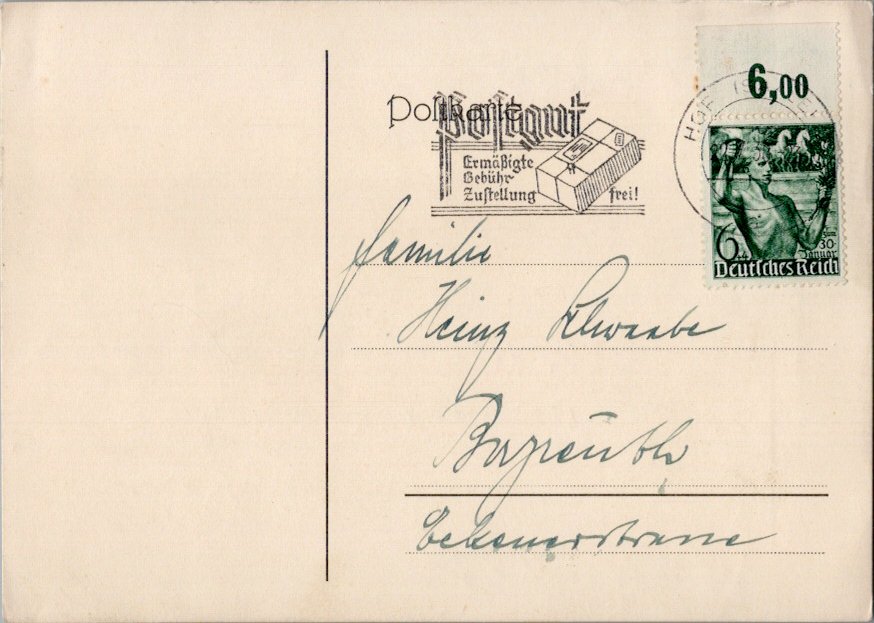 6,00
HOF (SAALE)
Postkarte
Postgut
Ermäßigte
Gebühr-
Zustellung frei!
6+4
30.
Januar
Deutsches Reich
Familie
Heinz Schwabe
Bayreuth